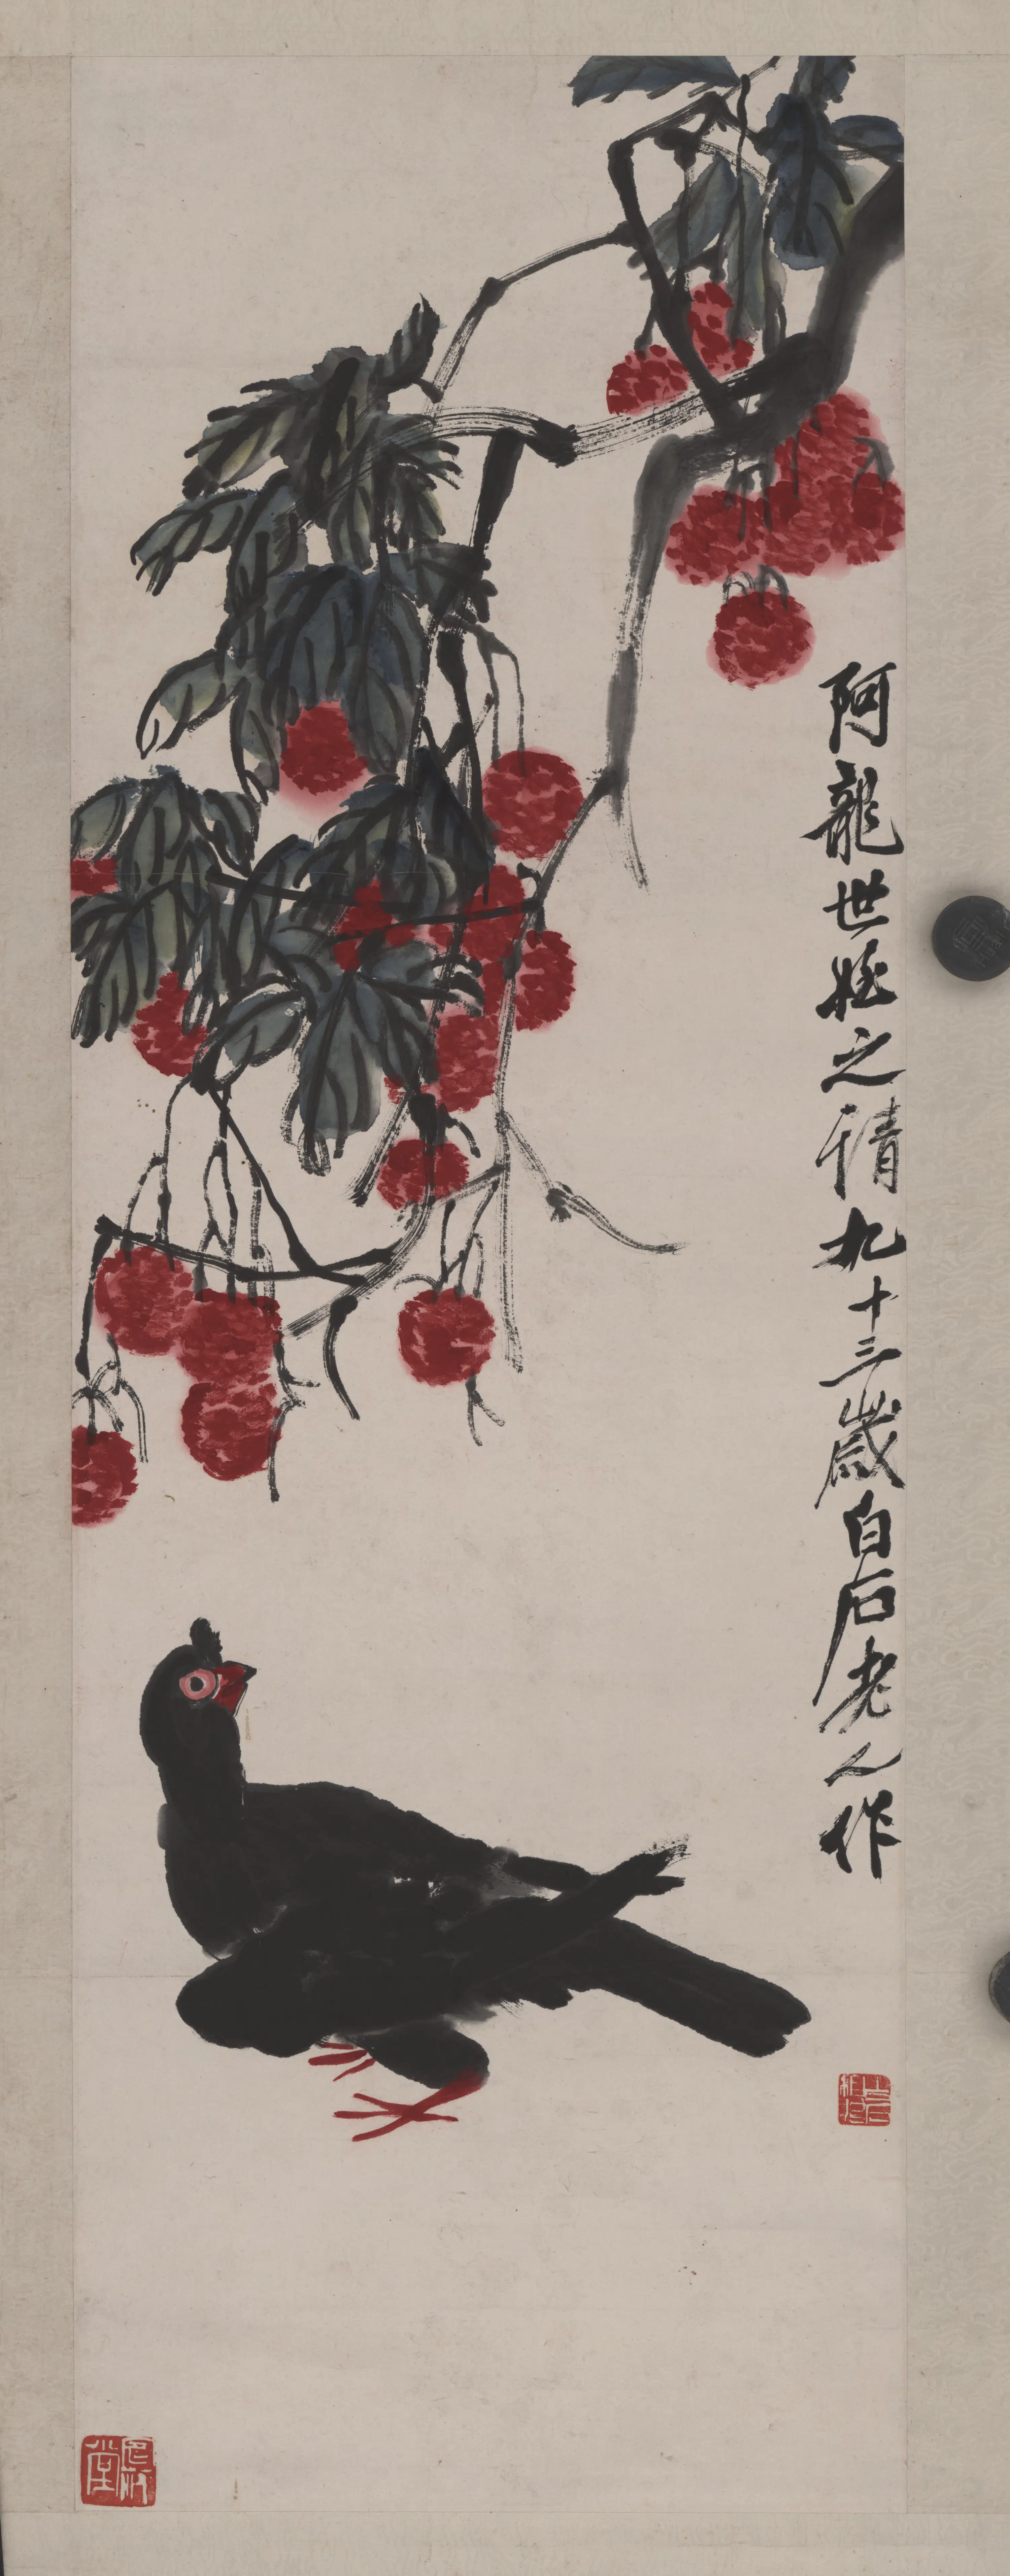 阿龍世姪之請九十三歲白石老人作